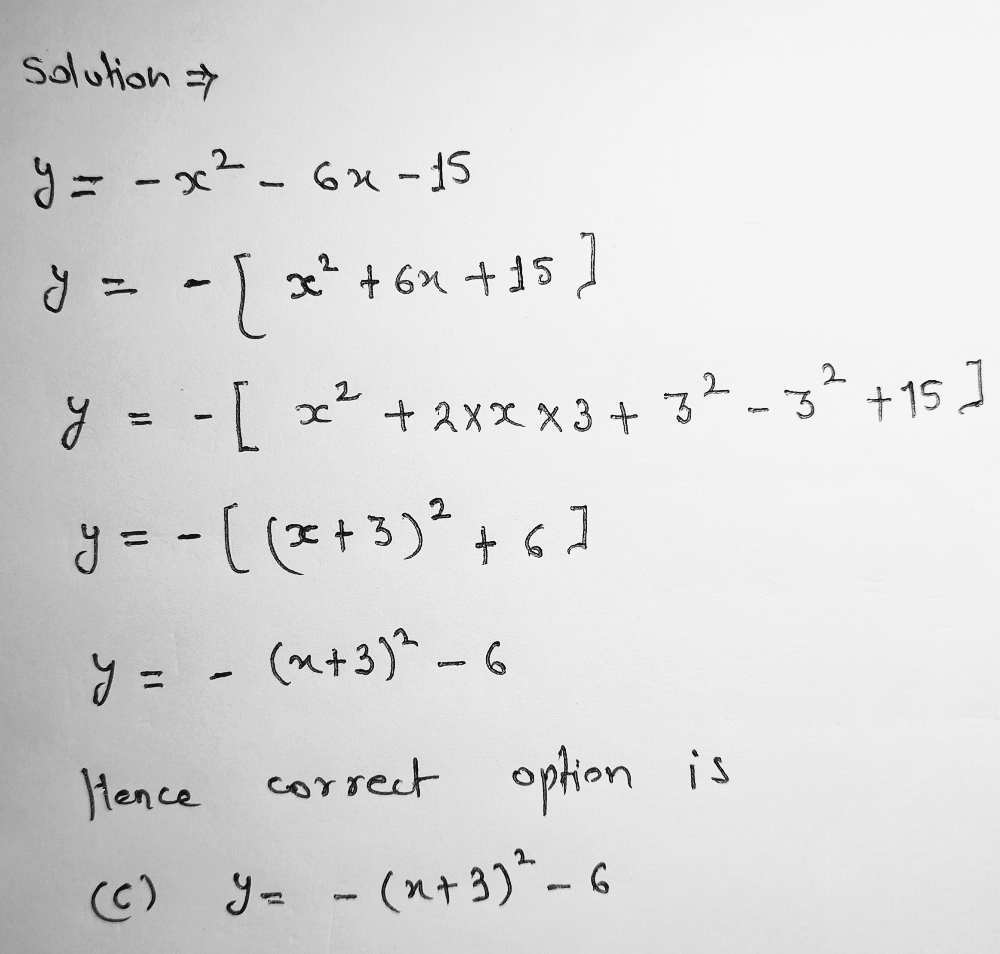 Solution ⇒
y = - x² - 6x - 15
y = - [ x² + 6x + 15 ]
y = - [ x² + 2 × x × 3 + 3² - 3² + 15 ]
y = - [ (x + 3)² + 6 ]
y = - (x+3)² - 6
Hence correct option is
(C) y = - (x+3)² - 6